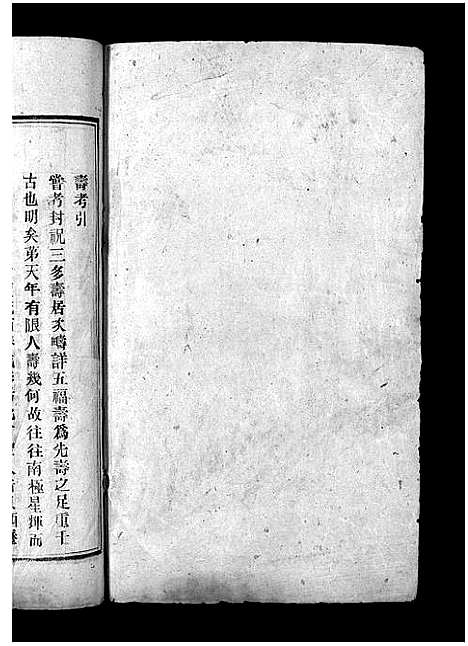 壽考引
嘗考封祝三多壽居次疇詳五福壽爲先壽之足重千
古也明矣第天年有限人壽幾何故往往南極星輝而